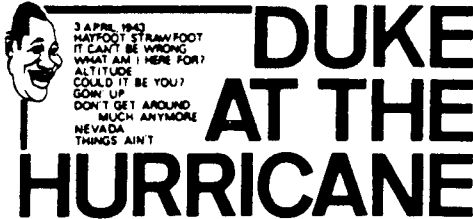 3 APRIL 1943
HAYFOOT STRAWFOOT
IT CAN'T BE WRONG
WHAT AM I HERE FOR?
ALTITUDE
COULD IT BE YOU?
GOIN' UP
DON'T GET AROUND
MUCH ANYMORE
NEVADA
THINGS AIN'T
DUKE
AT THE
HURRICANE